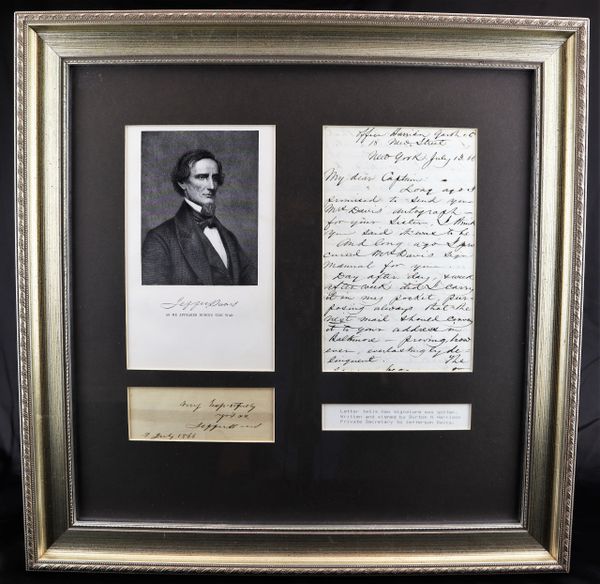 Jeffer Davis
AS HE APPEARED DURING THE WAR
Very Respectfully
yours
Jeffer Davis
7 July 1866
Office Harrison
18 New Street
New York July 18.
My dear Captain
Long ago I
promised to send you
Mr Davis autograph –
for your Sister, I think
you said it was to be
And long ago I pro
cured Mr Davis Sign
Manual for you
Day after day, & week
after week did I carry
it in my pocket pur
posing always that the
next mail should convey
it to your address in
Baltimore – proving how
ever, everlastingly de-
linquent. The
Letter tells how signature was gotten.
Written and signed by Burton N Harrison
Private Secretary to Jefferson Davis.